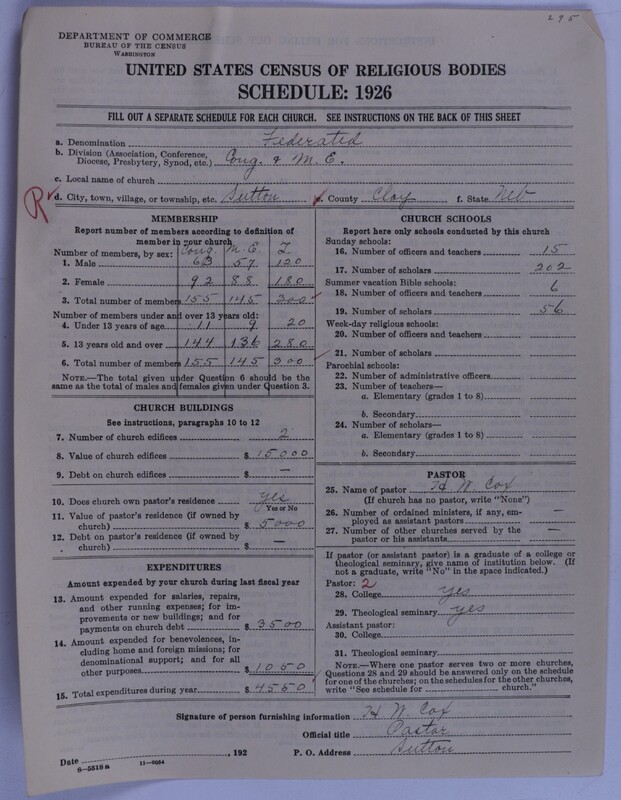 295
DEPARTMENT OF COMMERCE
BUREAU OF THE CENSUS
WASHINGTON
UNITED STATES CENSUS OF RELIGIOUS BODIES
SCHEDULE: 1926
FILL OUT A SEPARATE SCHEDULE FOR EACH CHURCH. SEE INSTRUCTIONS ON THE BACK OF THIS SHEET
a. Denomination Federated
b. Division (Association, Conference,
Diocese, Presbytery, Synod, etc.) Cong. & M.E.
c. Local name of church
R d. City, town, village, or township, etc. Sutton e. County Clay f. State Neb
MEMBERSHIP
Report number of members according to definition of
member in your church
Number of members, by sex: Cong. M.E. T
1. Male 63 57 120
2. Female 92 88 180
3. Total number of members 155 145 300
Number of members under and over 13 years old:
4. Under 13 years of age 11 9 20
5. 13 years old and over 144 136 280
6. Total number of members 155 145 300
NOTE.—The total given under Question 6 should be the
same as the total of males and females given under Question 3.
CHURCH BUILDINGS
See instructions, paragraphs 10 to 12
7. Number of church edifices 2
8. Value of church edifices $ 15000
9. Debt on church edifices $ —
10. Does church own pastor's residence yes
Yes or No
11. Value of pastor's residence (if owned by
church) $ 5000
12. Debt on pastor's residence (if owned by
church) $ —
EXPENDITURES
Amount expended by your church during last fiscal year
13. Amount expended for salaries, repairs,
and other running expenses; for im-
provements or new buildings; and for
payments on church debt $ 3500
14. Amount expended for benevolences, in-
cluding home and foreign missions; for
denominational support; and for all
other purposes $ 1050
15. Total expenditures during year $ 4550
CHURCH SCHOOLS
Report here only schools conducted by this church
Sunday schools:
16. Number of officers and teachers 15
17. Number of scholars 202
Summer vacation Bible schools:
18. Number of officers and teachers 6
19. Number of scholars 56
Week-day religious schools:
20. Number of officers and teachers
21. Number of scholars
Parochial schools:
22. Number of administrative officers
23. Number of teachers—
a. Elementary (grades 1 to 8)
b. Secondary
24. Number of scholars—
a. Elementary (grades 1 to 8)
b. Secondary
PASTOR
25. Name of pastor H. W. Cox
(If church has no pastor, write "None")
26. Number of ordained ministers, if any, em-
ployed as assistant pastors —
27. Number of other churches served by the
pastor or his assistants —
If pastor (or assistant pastor) is a graduate of a college or
theological seminary, give name of institution below. (If
not a graduate, write "No" in the space indicated.)
Pastor: 2
28. College yes
29. Theological seminary yes
Assistant pastor:
30. College
31. Theological seminary
NOTE.—Where one pastor serves two or more churches,
Questions 28 and 29 should be answered only on the schedule
for one of the churches; on the schedules for the other churches,
write "See schedule for church."
Signature of person furnishing information H W. Cox
Official title Pastor
Date , 192 P. O. Address Sutton
8—5518a 11—9064